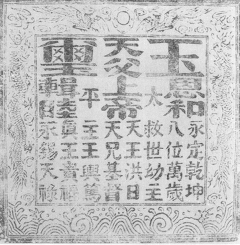 玉
璽
天父上帝
恩和
輯睦
永定乾坤
八位萬歲
太
救世幼主
天王洪日
天兄基督
主王輿篤
平
真王貴福
永錫天祿